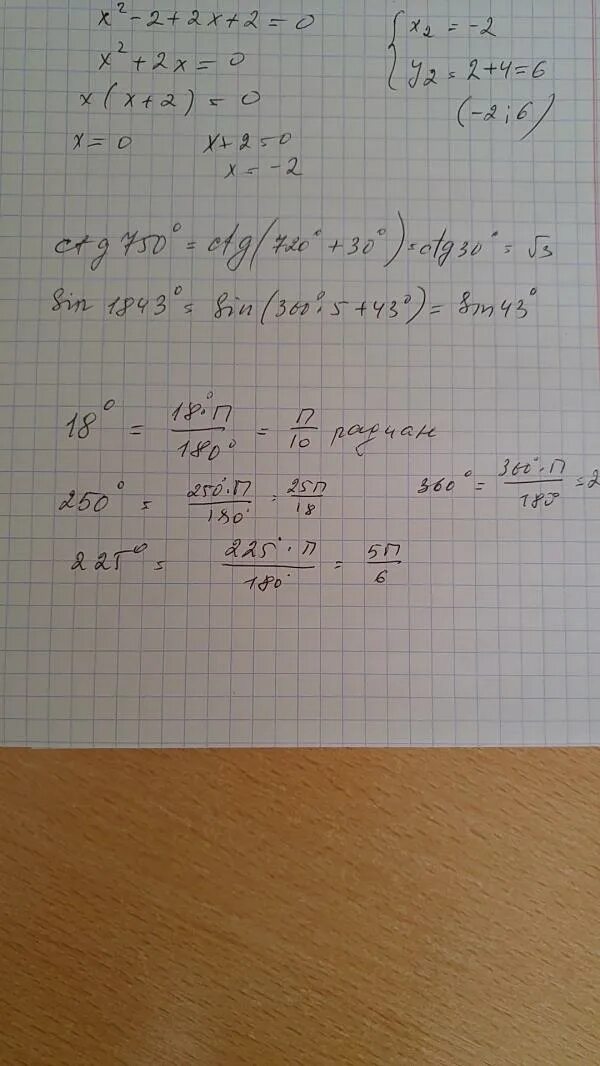 x² - 2 + 2x + 2 = 0
x² + 2x = 0
x(x+2) = 0
x = 0 x+2=0
x = -2
{ x₂ = -2
y₂ = 2+4=6
(-2; 6)
ctg 750° = ctg(720° + 30°) = ctg 30° = √3
Sin 1843° = Sin(360°·5 + 43°) = Sin 43°
18° = 18°·П/180° = П/10 радиан
250° = 250°·П/180° = 25П/18 360° = 360°·П/180° = 2
225° = 225°·П/180° = 5П/6